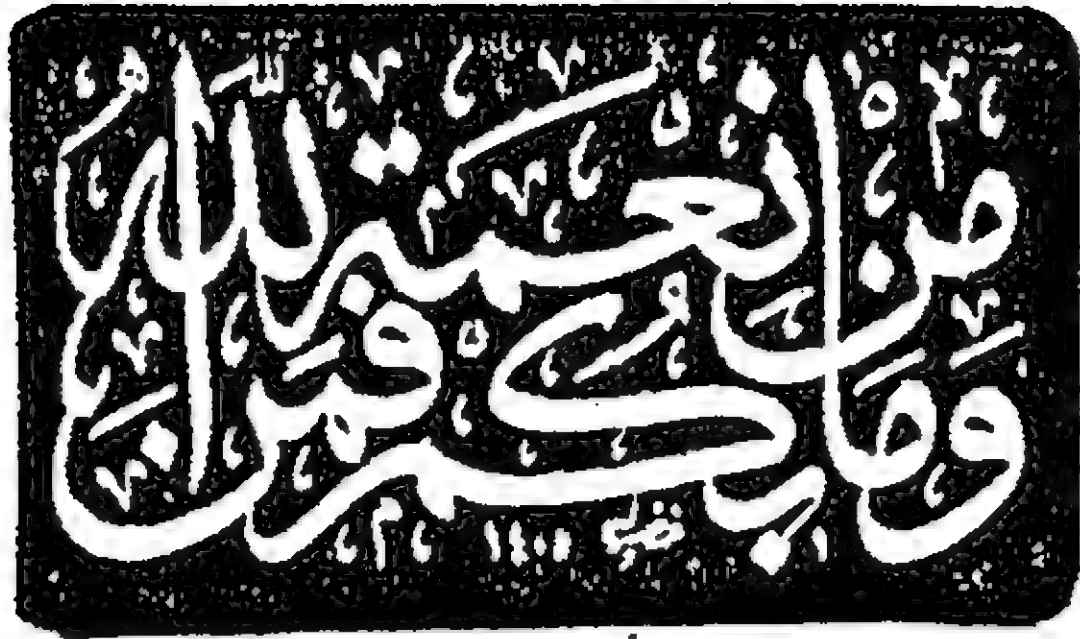 وَمَا بِكُمْ مِنْ نِعْمَةٍ فَمِنَ اللّٰهِ